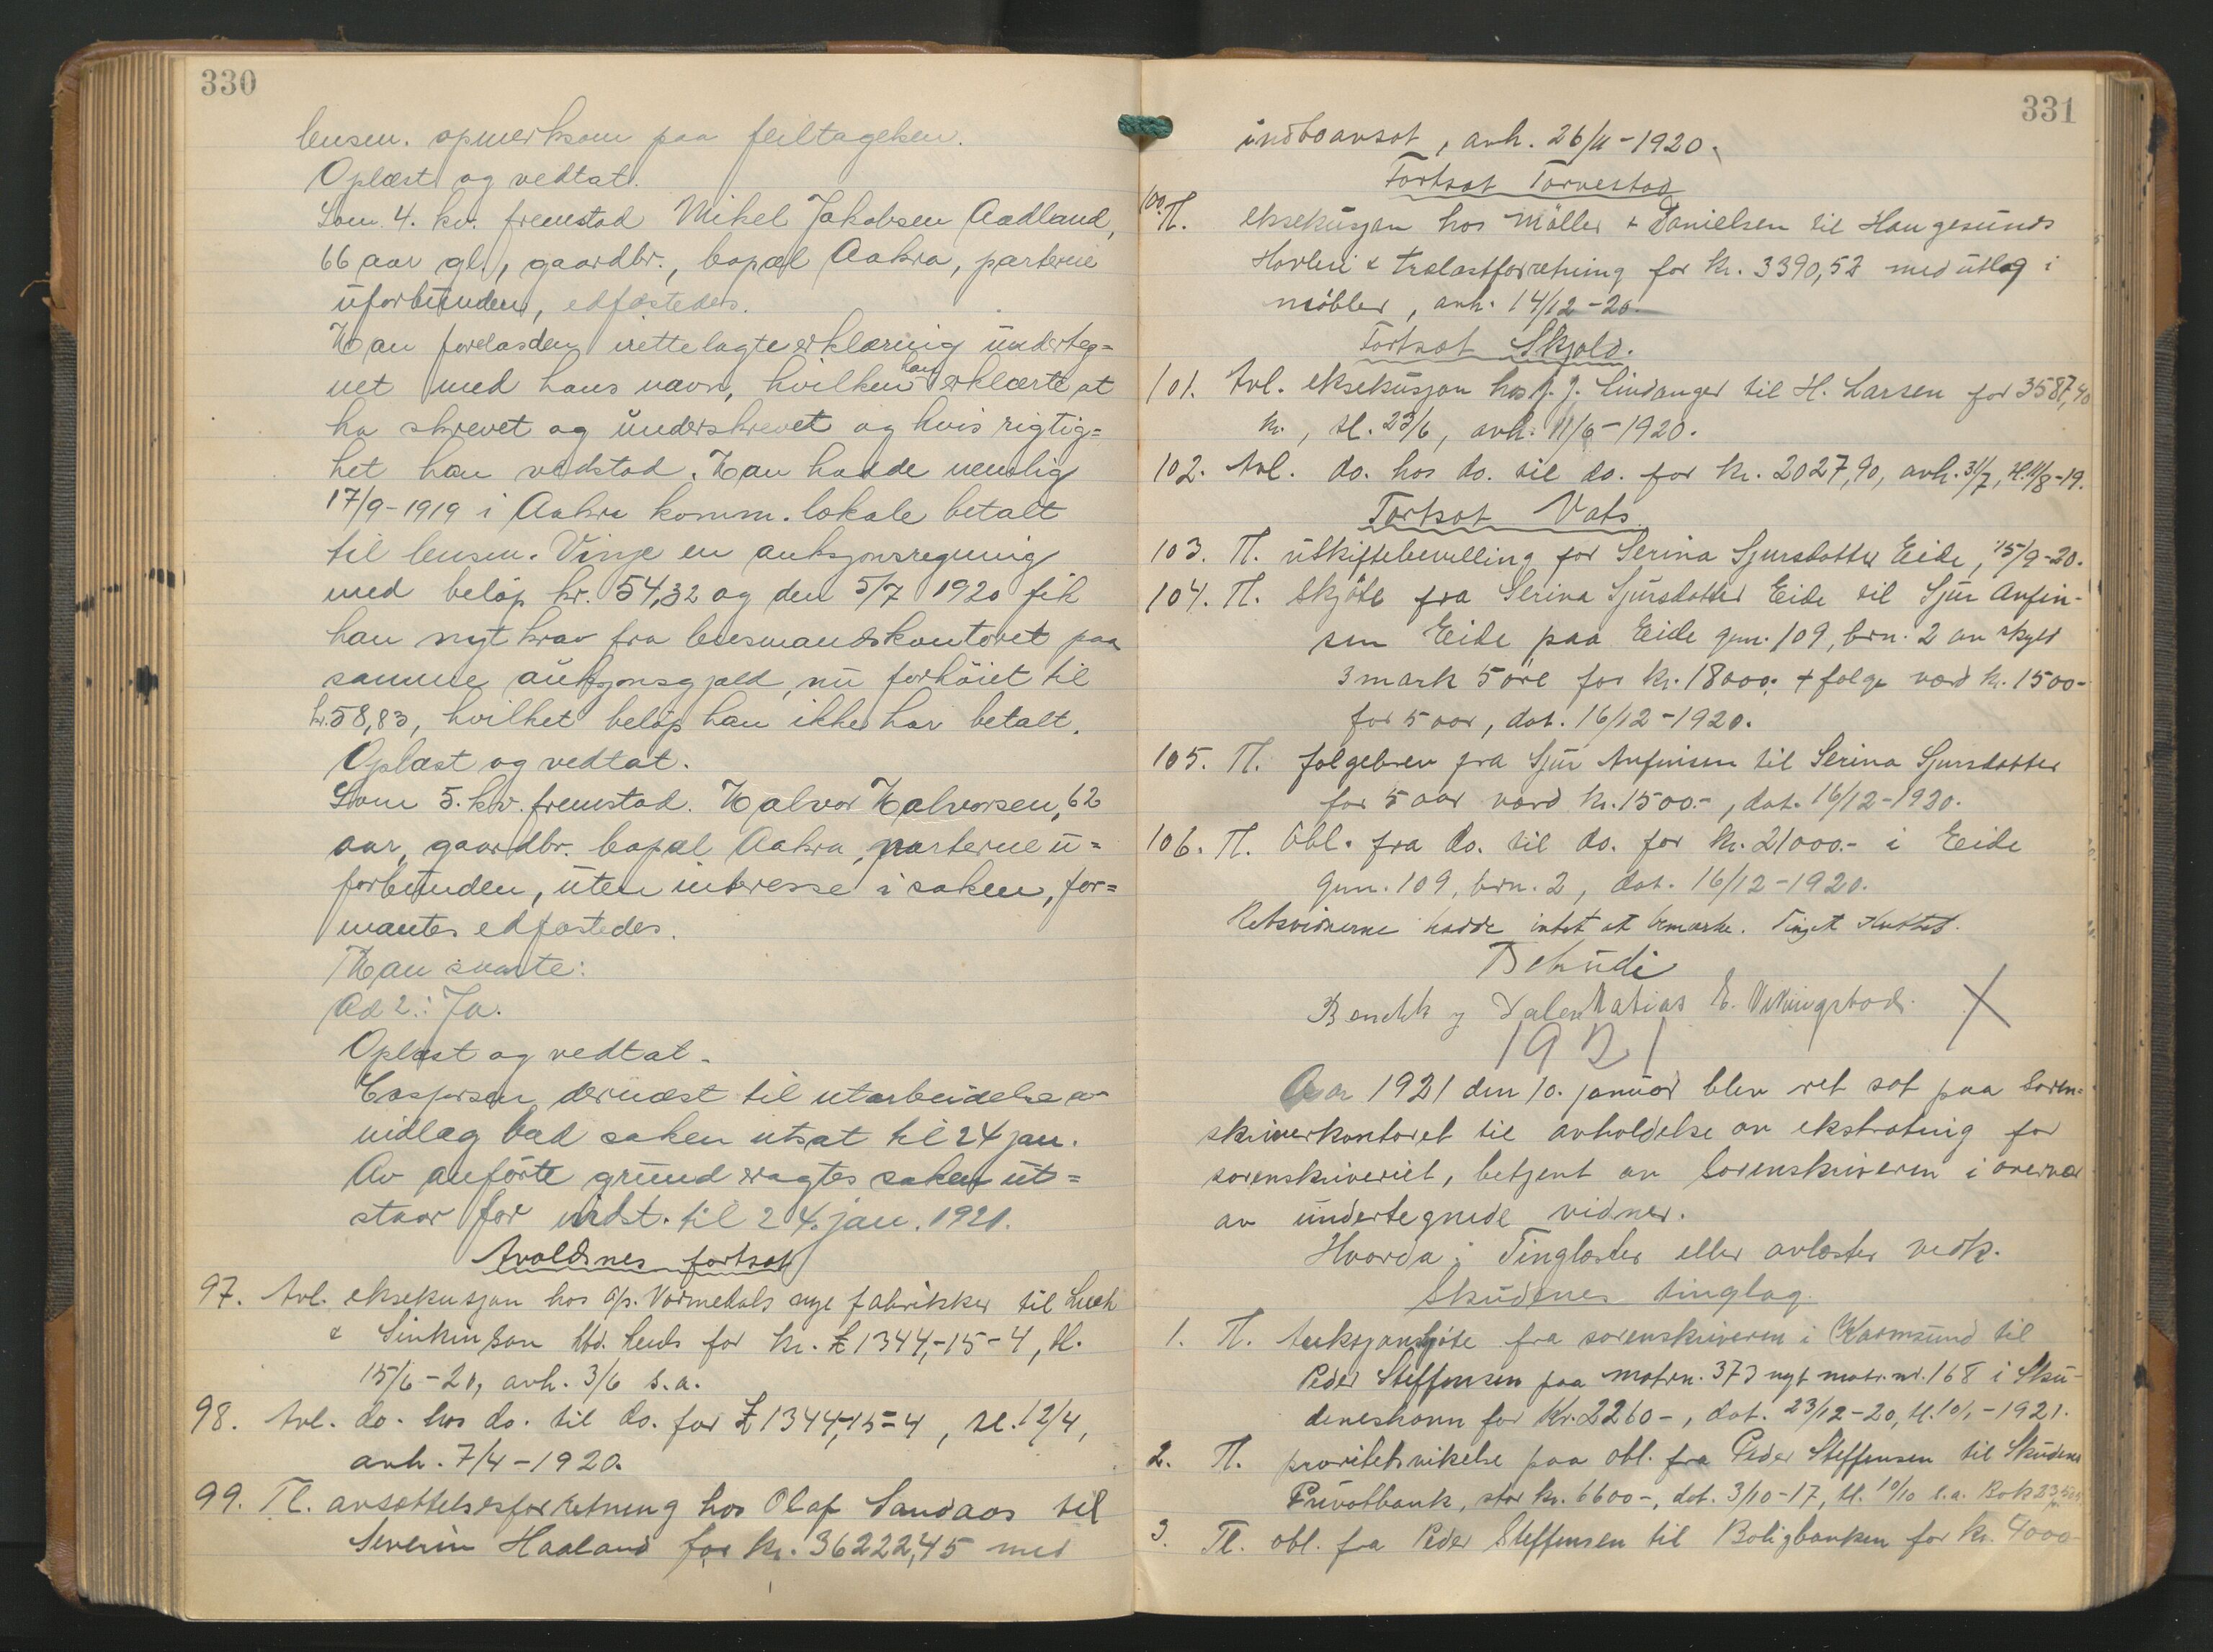 330
lensm. opmerksom paa feiltagelsen.
Oplæst og vedtat.
Som 4. kv. fremstod Mikel Jakobsen Aadland,
66 aar gl., gaardbr., bopæl Aakra, parterne
uforbunden, edfæstedes.
Han forelasdem irettelagte erklæring underteg=
net med hans navn, hvilken han erklærte at
ha skrevet og underskrevet og hvis rigtig=
het han vedstod. Han hadde nemlig
17/9-1919 i Aakra komm. lokale betalt
til lensm. Vinje en auksjonsregning
med beløp kr. 54,32 og den 5/7 1920 fik
han nyt krav fra lensmandskontoret paa
samme auksjonsgjæld, nu forhöiet til
kr. 58,83, hvilket beløp han ikke har betalt.
Oplæst og vedtat.
Som 5. kv. fremstod. Halvor Halvorsen, 62
aar, gaardbr. bopæl Aakra, parterne u=
forbunden, uten interesse i saken, for=
mantes edfæstedes.
Han svarte:
Ad 2: Ja.
Oplæst og vedtat.
Caspersen dernæst til utarbeidelse av
indlæg bad saken utsat til 24 jan.
Av anförte grund vagtes saken ut=
staar for indst. til 24. jan. 1921.
Avaldsnes fortsat
97. Avl. eksekusjon hos A/s. Vormedals nye fabrikker til
& Sinkinson Ltd. Leeds for kr. £ 1344,-15-4, tl.
15/6-20, avh. 3/6 s.a.
98. Avl. do. hos do. til do. for £ 1344,-15-4, tl. 12/4,
avh. 7/4-1920.
99. Tl. arsættelsesforretning hos Olaf Sandaas til
Severin Haaland for kr. 36222,45 med
331
indboarsat, avh. 26/11-1920.
Fortsat Torvestad
100. Tl. eksekusjon hos Möller & Danielsen til Haugesunds
Hövleri & trælastforretning for kr. 3390,52 med utlæg i
möbler, avh. 14/12-20.
Fortsat Skjold.
101. Avl. eksekusjon hos J. J. Lindanger til H. Larsen for 3587,40
kr., tl. 23/6, avh. 11/6-1920.
102. Avl. do. hos do. til do. for kr. 2027,90, avh. 31/7, tl. 11/8-19.
Fortsat Vats
103. Tl. utskiftebevilling for Serina Sjursdotter Eide, 15/9-20.
104. Tl. Skjöte fra Serina Sjursdotter Eide til Sjur Anfin-
sen Eide paa Eide gnr. 109, brn. 2 av skyld
3 mark 5 öre for kr. 18000. + folge værd kr. 1500-
for 5 aar, dat. 16/12-1920.
105. Tl. folgebrev fra Sjur Anfinsen til Serina Sjursdotter
for 5 aar værd kr. 1500.-, dat. 16/12-1920.
106. Tl. Obl. fra do. til do. for kr. 21000.- i Eide
gnr. 109, brn. 2, dat. 16/12-1920.
Retsvidnerne hadde intet at bemærke. Tinget sluttet.
Behudi
Bendik J Dalen Matias E. Vikingstad.
1921
Aar 1921 den 10. januar blev ret sat paa Soren-
skriverkontoret til avholdelse av ekstrating for
sorenskriveriet, betjent av Sorenskriveren i overvær
av undertegnede vidner.
Hvorda: Tinglæstes eller avlæstes vedk.
Skudenes tinglag.
1. Tl. Auksjonsskjöte fra sorenskriveren i Karmsund til
Peder Steffensen paa matrn. 373 nyt matr. nr. 168 i Sku-
deneshavn for Kr. 2260-, dat. 23/12-20, tl. 10/1-1921.
2. Tl. prioritetsvikelse paa obl. fra Peder Steffensen til Skudenes
Privatbank, stor kr. 6600-, dat. 3/10-17, tl. 10/10 s.a. Bok 23
3. Tl. obl. fra Peder Steffensen til Boligbanken for kr. 4000-